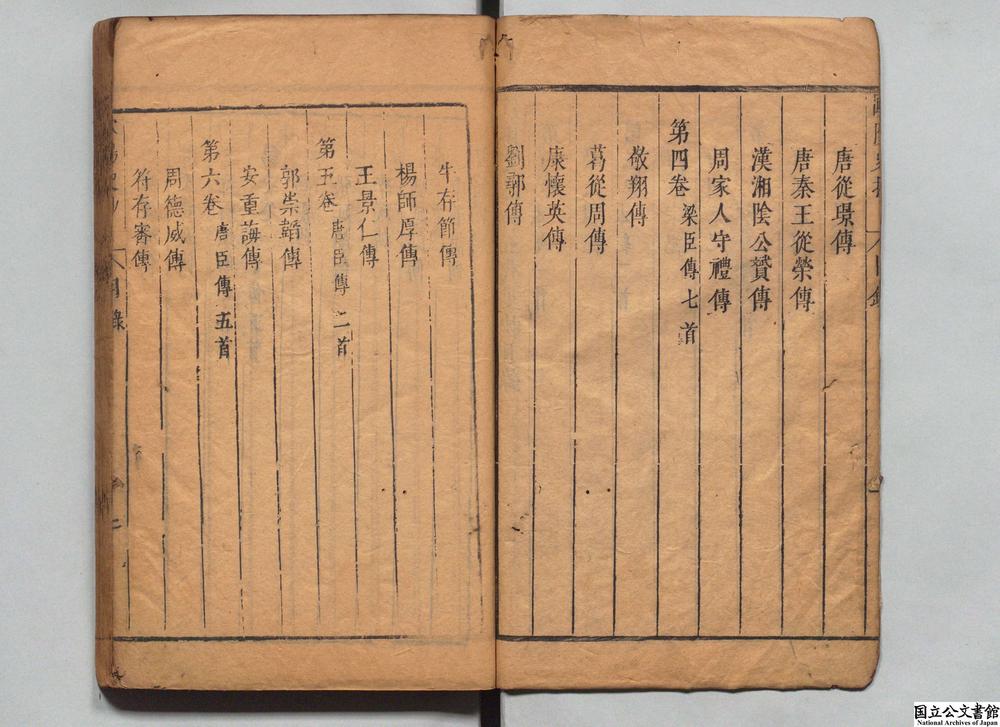 唐從璟傳
唐秦王從榮傳
漢湘陰公贇傳
周家人守禮傳
第四卷 梁臣傳七首
敬翔傳
葛從周傳
康懷英傳
劉鄩傳
牛存節傳
楊師厚傳
王景仁傳
第五卷 唐臣傳二首
郭崇韜傳
安重誨傳
第六卷 唐臣傳五首
周德威傳
符存審傳
目錄
二
国立公文書館
National Archives of Japan